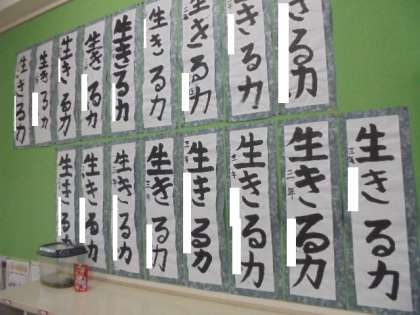 生きる力
生きる力
生きる力
生きる力
生きる力
生きる力
生きる力
生きる力
きる力
生きる力
生きる力
生きる力
生きる力
三年
生きる力
生きる力
三年
生きる力
三年
生きる力
三年